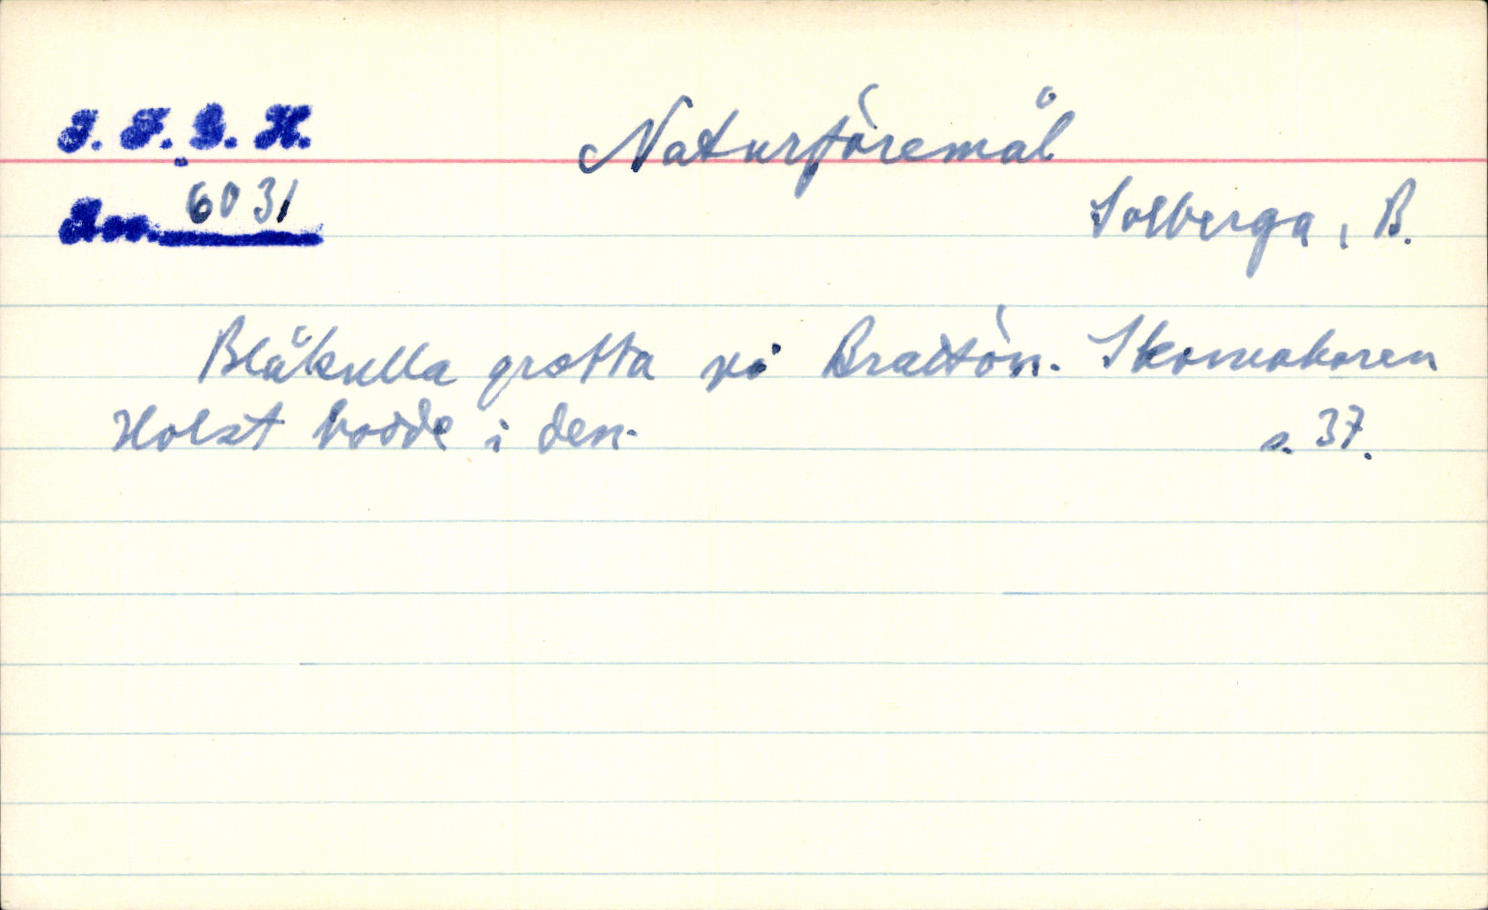 I. F. G. H.
Naturföremål
Acc. 6031
Solberga, B.
Blåkulla grotta på Brattön. Skomakaren
Holst bodde i den.
s. 37.